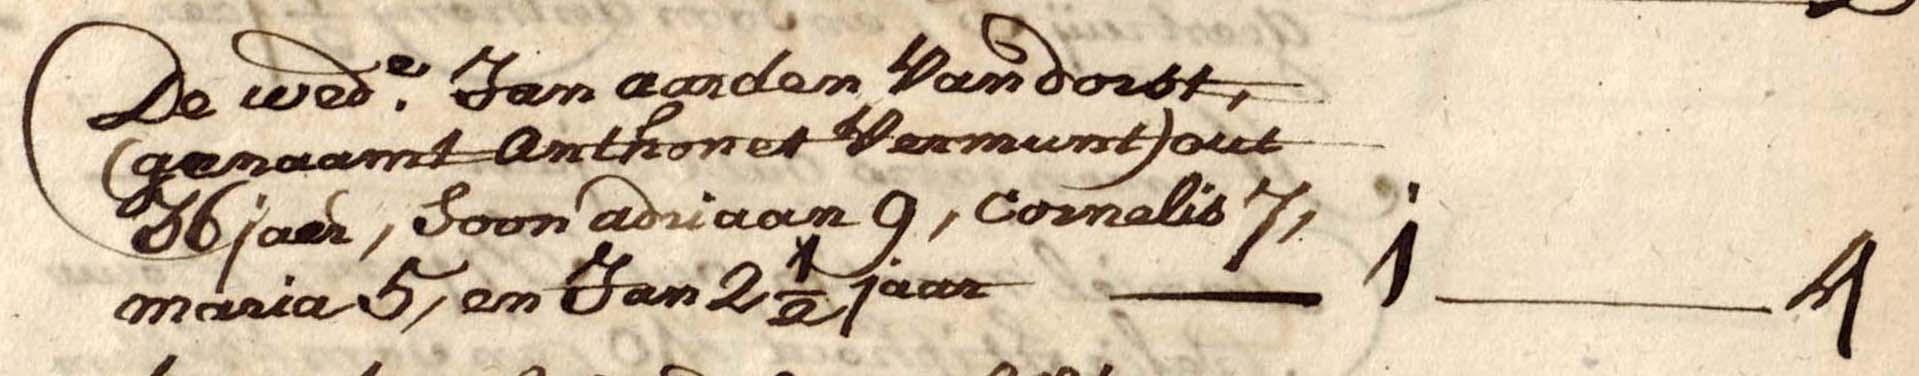 De wed.e Jan aarden Van dorst,
(genaamt Anthonet Vermunt) out
36 jaer, Soon adriaan 9, Cornelis 7,
maria 5, en Jan 2 1/2 jaar — 1 — 4